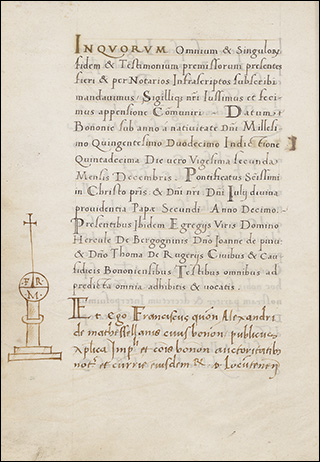 INQUORUM Omnium & Singuloꝝ
fidem & Testimonium premissorum presentes
fieri & per Notarios Infrascriptos subscribi
mandauimus / Sigilliqꝫ nr̄i Iussimus et feci-
mus appensione Comuniri – Datum
Bononie sub anno a natiuitate Dn̄i Millesi
mo Quingentesimo Duodecimo Indictione
Quintadecima Die uero Vigesima secunda
Mensis Decembris . Pontificatus Sc̄issimi
in Christo pr̄is & Dn̄i nr̄i Dn̄i Iulij diuina
prouidentia Papæ Secundi . Anno Decimo .
Presentibus Ibidem Egregijs Viris Domino
Hercule De Bergogninis Dn̄o Ioanne de
& Dn̄o Thoma De Rugerijs Ciuibus & Cau
sidicis Bononiensibus Testibus omnibus ad
predicta omnia adhibitis & uocatis .
F R
M
Et Ego Franciscus quon̄ Alexandri
de mathessellanis ciuis bonon̄ publicus
aplica Impl̄i et cōis bonon̄ auctoritatibꝫ
not.ꝰ et curie eiusdem R. D. Locuten̄tij